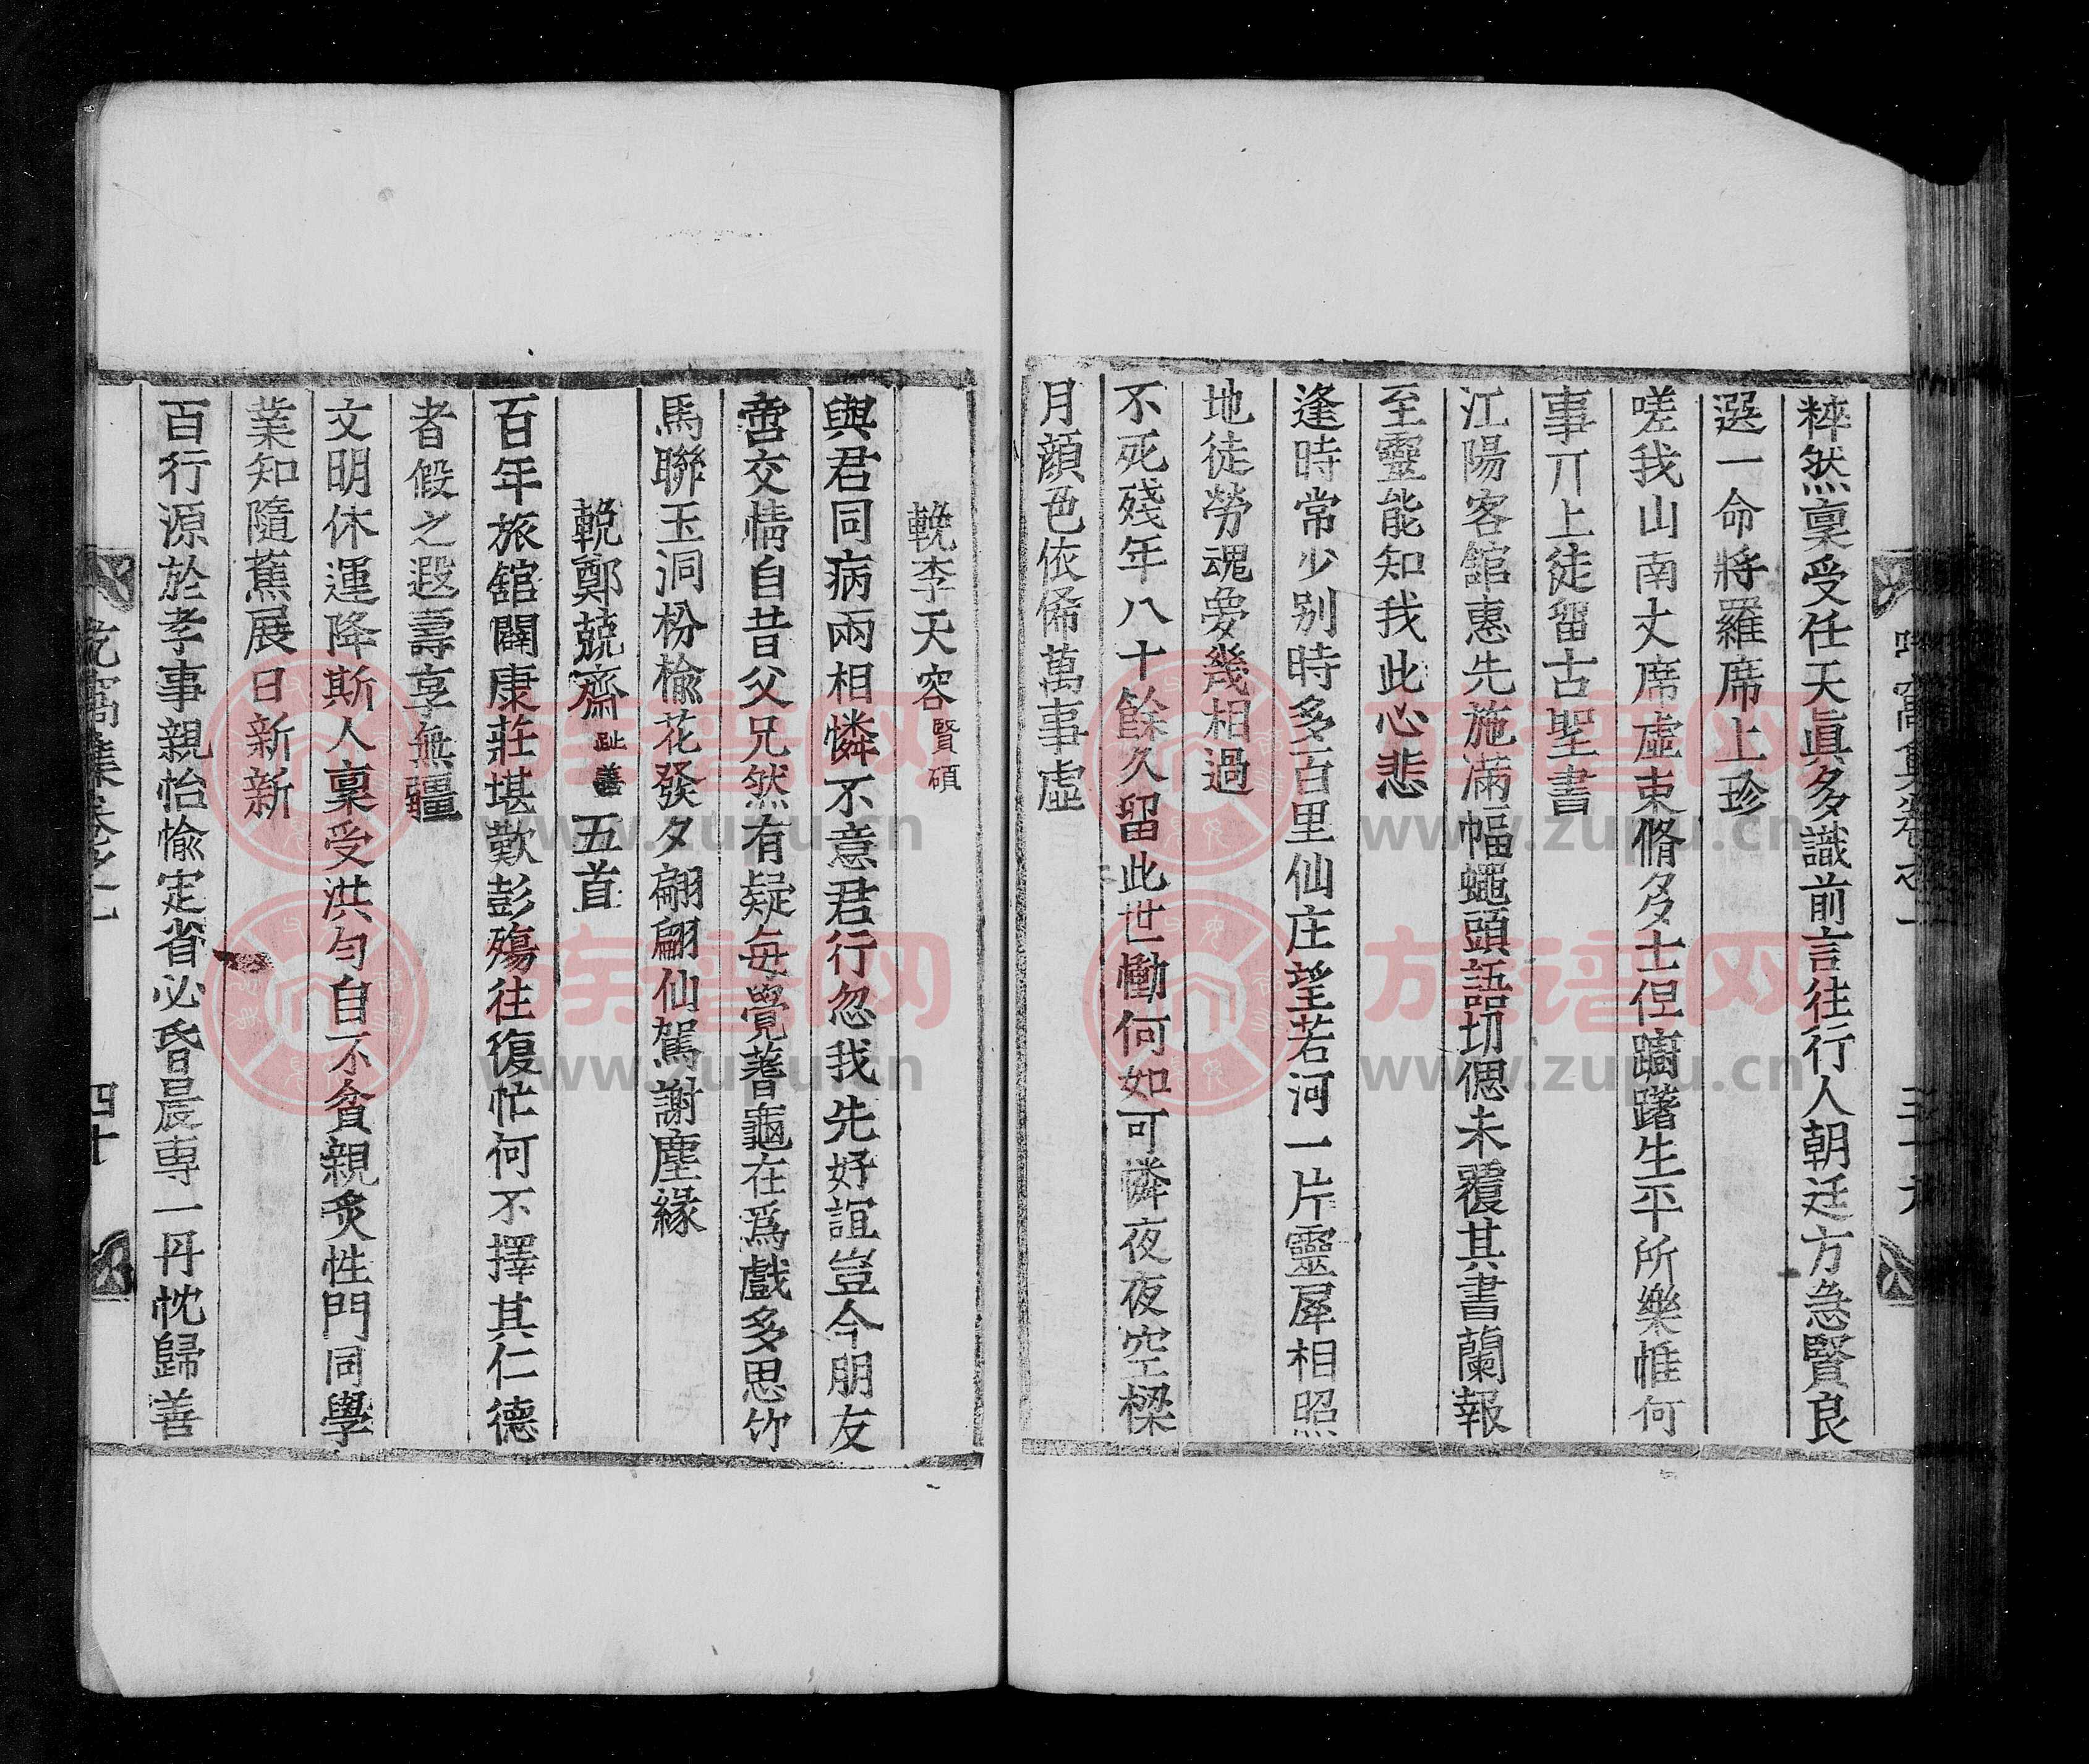 粹然稟受任天眞多識前言往行人朝廷方急賢良
選一命將羅席上珍
嗟我山南丈席虛束脩多士但躕躇生平所樂惟何
事丌上徒留古聖書
江陽客舘惠先施滿幅蠅頭語切偲未覆其書蘭報
至靈能知我此心悲
逢時常少別時多百里仙庄望若河一片靈犀相照
地徒勞魂夢幾相過
不死殘年八十餘久留此世慟何如可憐夜夜空樑
月顔色依俙萬事虛
輓李天容賢碩
與君同病兩相憐不意君行忽我先好誼豈今朋友
啻交情自昔父兄然有疑每覺蓍龜在爲戲多思竹
馬聯玉洞枌楡花發夕翩翩仙駕謝塵緣
輓鄭兢齋趾善五首
百年旅舘闢康莊堪歎彭殤往復忙何不擇其仁德
者假之遐壽享無疆
文明休運降斯人稟受洪勻自不貪親炙性門同學
業知隨蕉展日新新
百行源於孝事親怡愉定省必昏晨専一丹忱歸善
窩集卷之一
四十
族谱网
www.zupu.cn
族谱网
www.zupu.cn
族谱网
www.zupu.cn
族谱网
www.zupu.cn